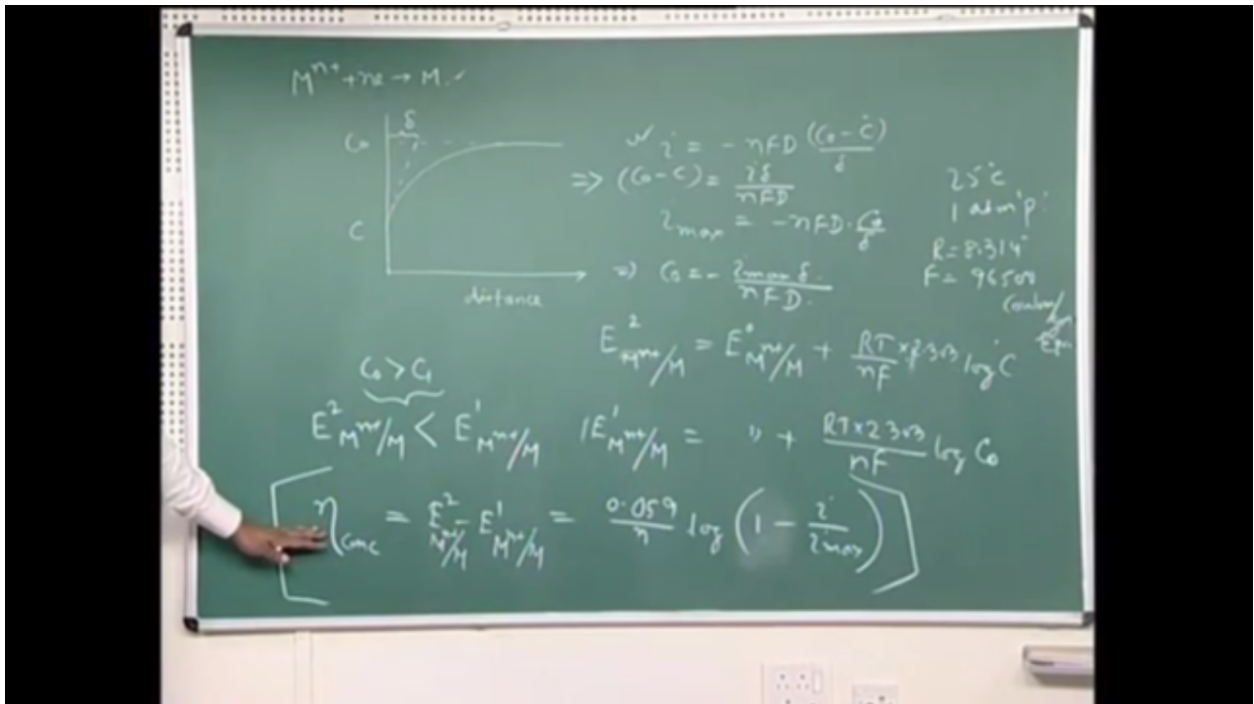 Mⁿ⁺ + ne → M ✓
δ
C₀
C
distance
✓ i = - nFD (C₀ - C)/δ
=> (C₀ - C) = iδ/nFD
i_max = - nFD · C₀/δ
=> C₀ = - i_max δ/nFD.
25°C
1 atm p.
R = 8.314
F = 96500
E²_Mⁿ⁺/M = E⁰_Mⁿ⁺/M + RT × 2.303/nF log C
C₀ > C₁
E²_Mⁿ⁺/M < E¹_Mⁿ⁺/M
E¹_Mⁿ⁺/M = " + RT × 2.303/nF log C₀
[η_conc = E²_Mⁿ⁺/M - E¹_Mⁿ⁺/M = 0.059/n log (1 - i/i_max)]